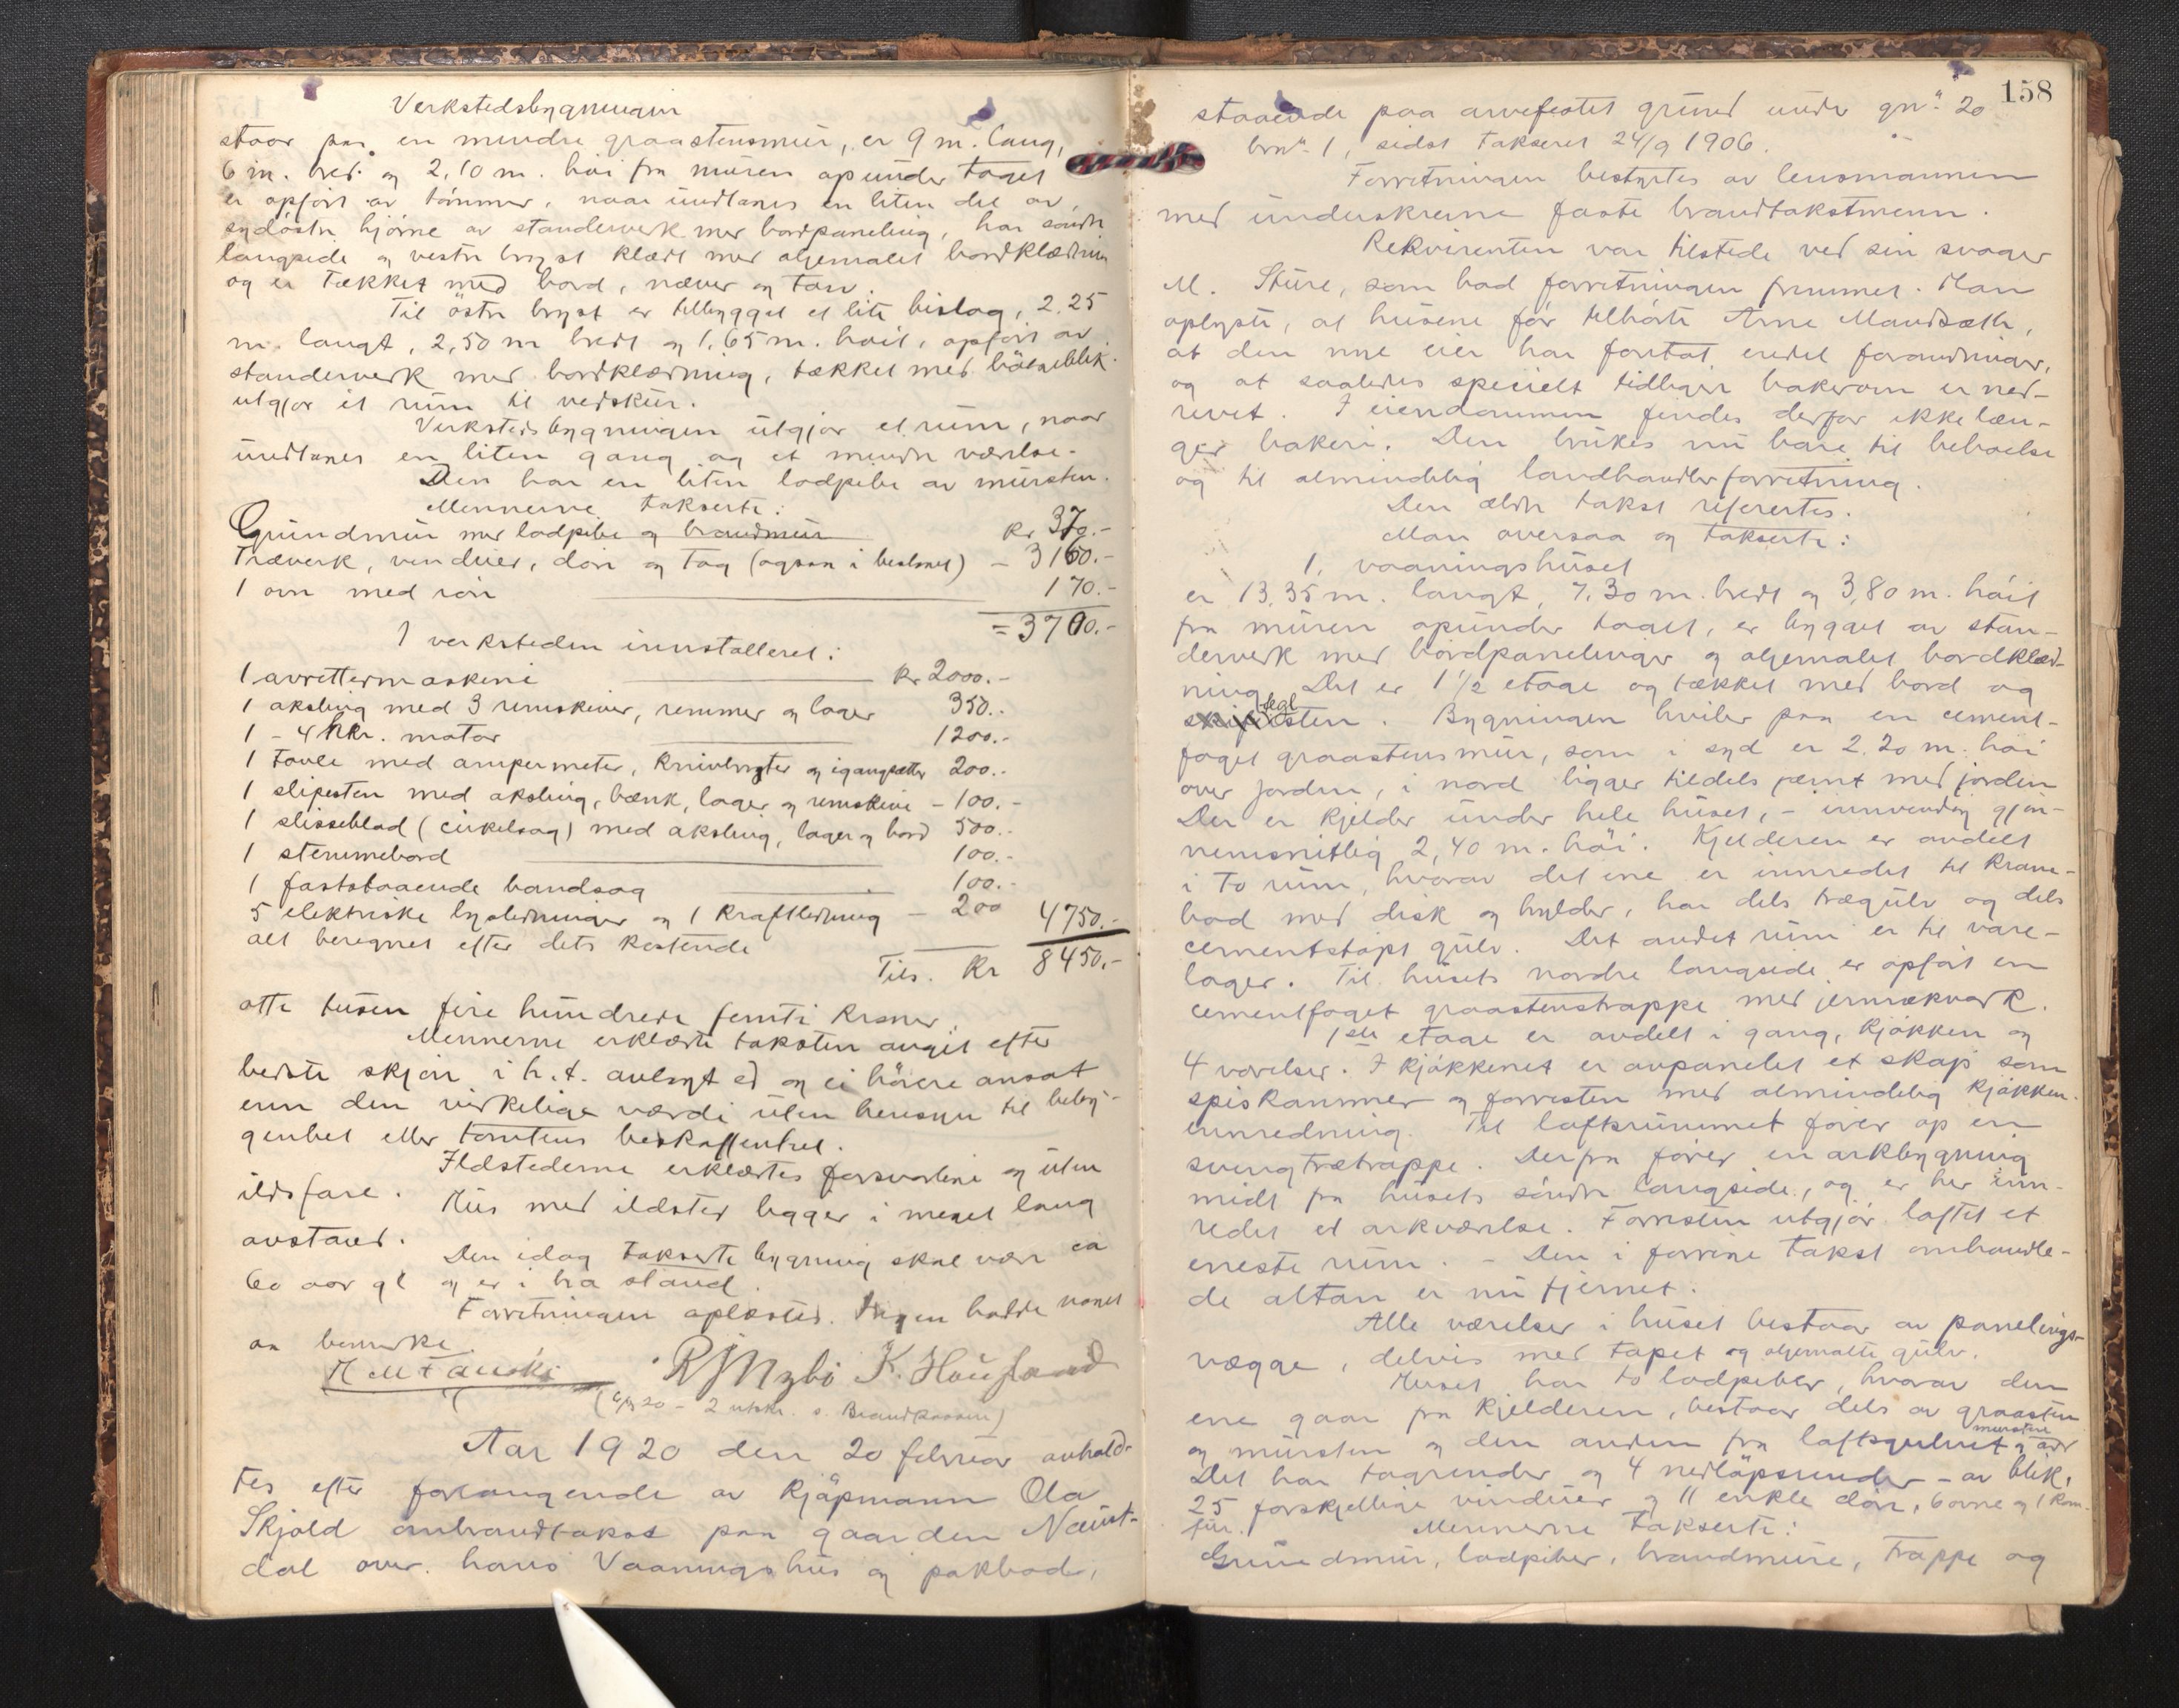 Verkstedsbygningen
staar paa en mindre graastensmur, er 9 m. lang,
6 m. bred og 2,10 m. høi fra muren opunder taget
er opført av tømmer, naar undtanes en liten del av
sydøstre hjørne av standerverk med bordpaneling, har søndre
langside og vestre bryst klædt med oljemalet bordklædning
og er tækket med bord, næver og torv.
Til østre bryst er tilbygget et lite bislag, 2.25
m. langt, 2,50 m bredt og 1,65 m. høit, opført av
standerverk med bordklædning, tækket med bölgeblik.
utgjør et rum til vedskur.
Verkstedsbygningen utgjør et rum, naar
undtanes en liten gang og et mindre værelse.
Den har en liten lodpibe av mursten.
Mennerne takserte:
Grundmur med lodpibe og brandmur kr 370.-
Træverk, vinduer, döre og tag (ogsaa i beslaget) - 3160.-
1 ovn med rör 170.-
= 3700.-
I verksteden innstalleret:
1 avrettermaskine kr 2000.-
1 aksling med 3 remskiver, remmer og lager 350.-
1 - 4 hkr. motor 1200.-
1 tavle med ampermeter, knivbryter og igangsætter 200.-
1 slipesten med aksling, bænk, lager og remskive - 100.-
1 slisseblad (cirkelsag) med aksling, lager og bord 500.-
1 stemmebord 100.-
1 faststaaende bandsag 100.-
5 elektriske lysledninger og 1 kraftledning - 200 4750.-
alt beregnet efter dets kostende
Tils. Kr 8450.-
otte tusen fire hundrede femti kroner.
Mennerne erklærte taksten avgit efter
bedste skjøn i h.t. avlagt ed og ei höiere ansat
enn den virkelige værdi uten hensyn til beby-
genhet eller tomtens beskaffenhet.
Ildstederne erklærtes forsvarlige og uten
ildsfare. Hus med ildsted ligger i meget lang
avstand.
Den idag takserte bygning skal være ca
60 aar gl og er i bra stand.
Forretningen oplæstes. Ingen hadde noget
aa bemerke.
R J Myhre K. Haugland
Aar 1920 den 20 februar avhold-
tes efter forlangende av kjøpmann Ola
Skjold ombrandtakst paa gaarden Naust-
dal over hans Vaaningshus og pakbod,
158
staaende paa arvefestet grund under gnr. 20
bnr. 1, sidst takseret 24/9 1906.
Forretningen bestyrtes av lensmannen
med underskrevne faste brandtakstmenn.
Rekvirenten var tilstede ved sin svoger
M. Sture, som bad forretningen fremmet. Han
oplyste, at husene før tilhørte Arne Maudsæth,
at den nye eier har foretat endel forandringer,
og at saaledes specielt tidligere bakerovn er ned-
revet. I eiendommen findes derfor ikke læn-
ger bakeri. Den brukes nu bare til beboelse
og til almindelig landhandlerforretning.
Den ældre takst refertes.
Man oversaa og takserte:
1. vaaningshuset
er 13,35 m. langt, 7,30 m. bredt og 3,80 m. høit
fra muren opunder taget, er bygget av stan-
derverk med bordpanelinger og oljemalet bordklæd-
ning. Det er 1 1/2 etage og tækket med bord og
teglsten. Bygningen hviler paa en cement-
foget graastensmur, som i syd er 2.20 m. høi
over jorden, i nord ligger tildels jæmt med jorden
Der er kjelder under hele huset, - innvendig gjen-
nemsnitlig 2,40 m. høi. Kjelderen er avdelt
i to rum, hvorav det ene er innredet til kram-
bod med disk og hylder, har dels trægulv og dels
cementstøpt gulv. Det andet rum er til vare-
lager. Til husets nordre langside er opført en
cementfoget graastenstrappe med jernrækverk.
1ste etage er avdelt i gang, kjøkken og
4 værelser. I kjøkkenet er avpanelet et skap som
spiskammer og forresten med almindelig kjøkken-
innredning. Til loftsrummet fører op en
svingtrætrappe. Derfra fører en arkbygning
midt fra husets söndre langside, og er her inn-
redet et arkværelse. Forresten utgjør loftet et
eneste rum. - Den i forrige takst omhandle-
de altan er nu fjernet.
Alle værelser i huset bestaar av panelings-
vægge, delvis med tapet og oljemalte gulv.
Huset har to lodpiber, hvorav den
ene gaar fra kjelderen, bestaar dels av graasten
og mursten og den anden fra loftsgulvet
mursten
Det har tagrender og 4 nedløpsrender - av blik,
25 forskjellige vinduer og 11 enkle döre, 6 ovne og 1 kom-
fur.
Mennerne takserte:
Grundmur, lodpiber, brandmure, trappe og